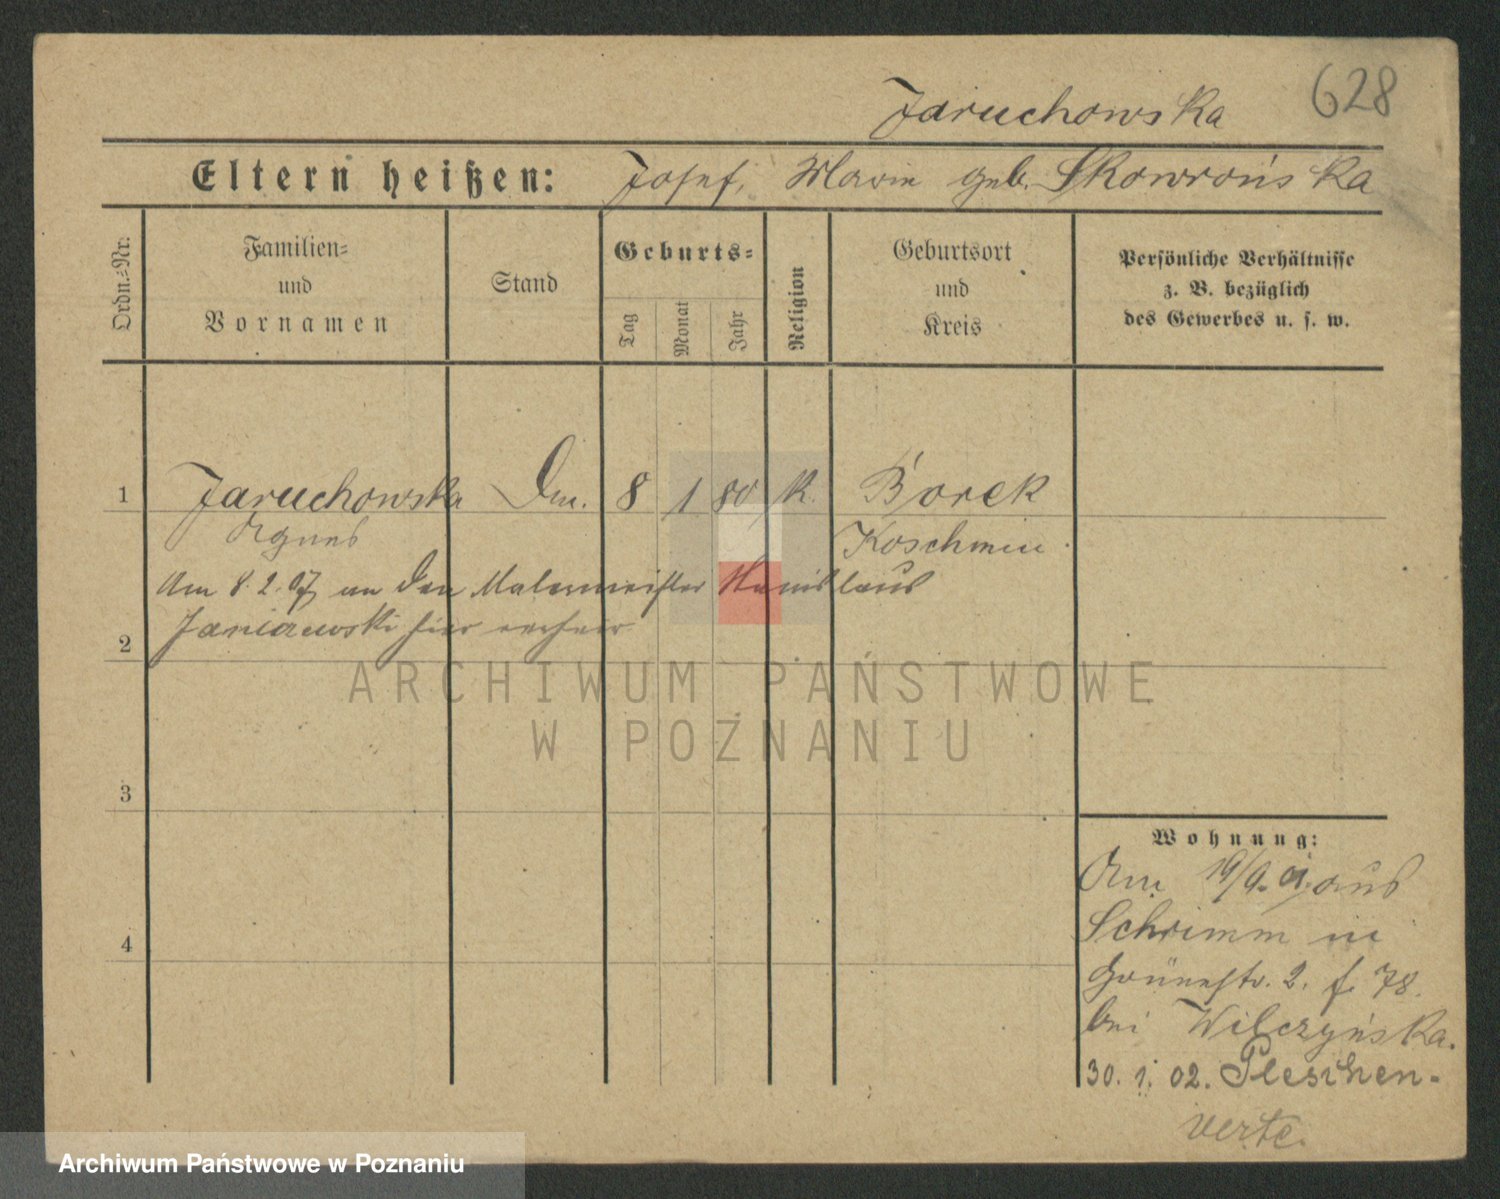 Jaruchowska 628
Eltern heißen: Josef, Marie geb. Skowrońska
Ordn.-Nr.
Familien-
und
Vornamen
Stand
Geburts-
Tag
Monat
Jahr
Religion
Geburtsort
und
Kreis
Persönliche Verhältnisse
z. B. bezüglich
des Gewerbes u. s. w.
1 Jaruchowska 8 1 80 k. Borek
Agnes Koschmin
Am 8.2.07 an den Malermeister Stanislaus
2 Janiszewski hier verheir
3
4
Wohnung:
Am 19/9. 01. aus
Schrimm in
Grünestr. 2. f. 78.
bei Wilczyńska.
30. 1. 02. Pleschen.
verte.
ARCHIWUM PAŃSTWOWE
W POZNANIU
Archiwum Państwowe w Poznaniu